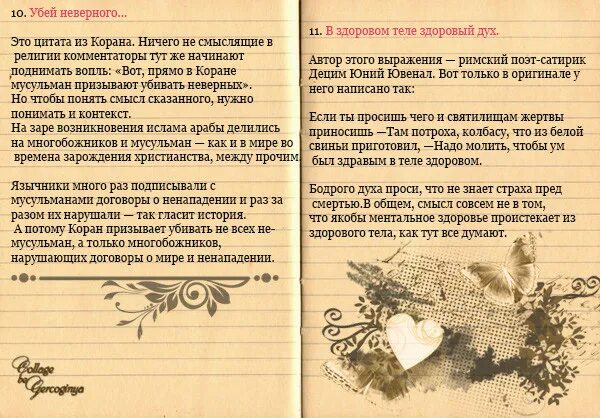 10. Убей неверного...
Это цитата из Корана. Ничего не смыслящие в
религии комментаторы тут же начинают
поднимать вопль: «Вот, прямо в Коране
мусульман призывают убивать неверных».
Но чтобы понять смысл сказанного, нужно
понимать и контекст.
На заре возникновения ислама арабы делились
на многобожников и мусульман — как и в мире во
времена зарождения христианства, между прочим.
Язычники много раз подписывали с
мусульманами договоры о ненападении и раз за
разом их нарушали — так гласит история.
А потому Коран призывает убивать не всех не-
мусульман, а только многобожников,
нарушающих договоры о мире и ненападении.
Collage
be
Gercoginya
11. В здоровом теле здоровый дух.
Автор этого выражения — римский поэт-сатирик
Децим Юний Ювенал. Вот только в оригинале у
него написано так:
Если ты просишь чего и святилищам жертвы
приносишь —Там потроха, колбасу, что из белой
свиньи приготовил, —Надо молить, чтобы ум
был здравым в теле здоровом.
Бодрого духа проси, что не знает страха пред
смертью.В общем, смысл совсем не в том,
что якобы ментальное здоровье проистекает из
здорового тела, как тут все думают.